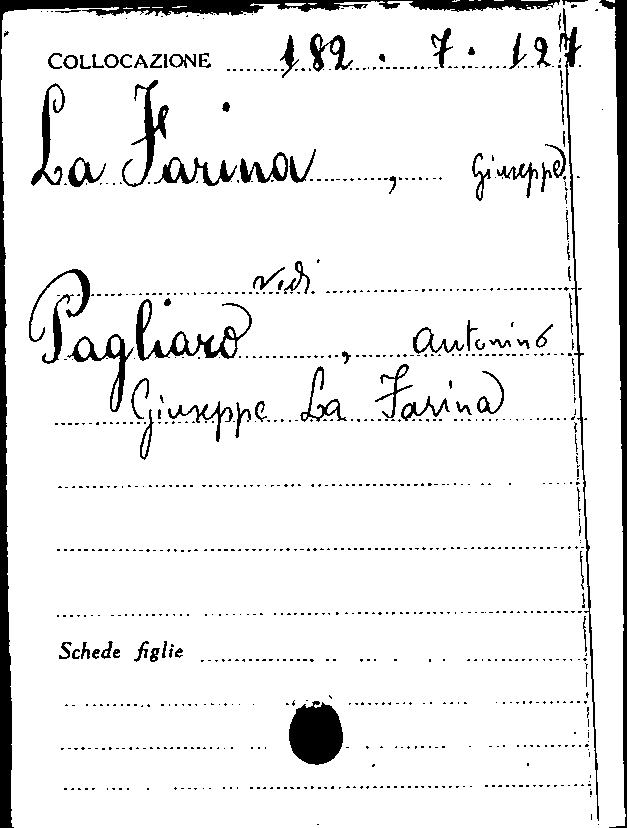 COLLOCAZIONE 182.7.127
La Farina, Giuseppe
vedi
Pagliaro, Antonino
Giuseppe La Farina
Schede figlie